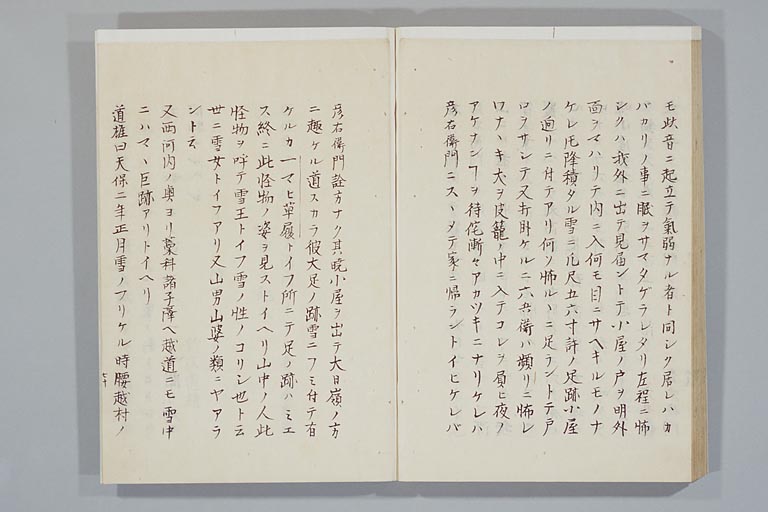 モ此音ニ起立テ氣弱ナル者ト同シク居レハカ
バカリノ事ニ眠ヲサマタゲラレタリ左程ニ怖
シクハ我外ニ出テ見届ントテ小屋ノ戸ヲ明外
面ヲマハリテ内ニ入何モ目ニサヘキルモノナ
ケレ𪜈降積タル雪ニ凡尺五六寸許ノ足跡小屋
ノ廻リニ付テアリ何ソ怖ルヽニ足ラントテ戸
ロヲサシテ又打臥ケルニ六兵衛ハ頻リニ怖レ
ワナヽキ犬ヲ皮籠ノ中ニ入テコレヲ負ヒ夜ノ
アケナンフヲ待侘漸々アカツキニナリケレハ
彦右衛門ニスヽメテ家ニ帰ラントイヒケレバ
彦右衛門詮方ナク其暁小屋ヲ出テ大日嶺ノ方
ニ趣ケル道スカラ彼大足ノ跡雪ニフミ付テ有
ケルカ一マヒ草履トイフ所ニテ足ノ跡ハミエ
ス終ニ此怪物ノ姿ヲ見ストイヘリ山中ノ人此
怪物ヲ呼テ雪王トイフ雪ノ性ノコリシ也ト云
世ニ雪女トイフアリ又山男山婆ノ類ニヤアラ
ント云
又西河内ノ奥ヨリ藁科諸子澤ヘ越道ニモ雪中
ニハマヽ巨跡アリトイヘリ
道雄曰天保二年正月雪ノフリケル時腰越村ノ